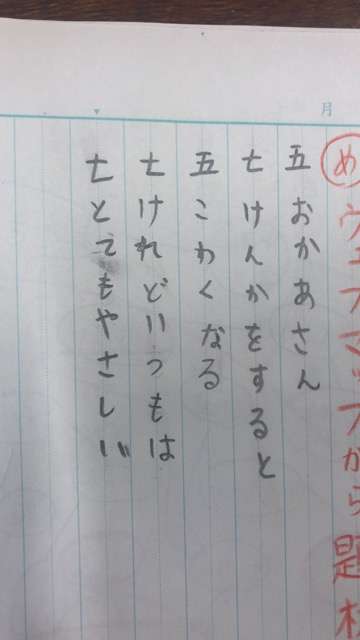 月
めウェブマップから題材
五おかあさん
七けんかをすると
五こわくなる
七けれどいつもは
七とてもやさしい